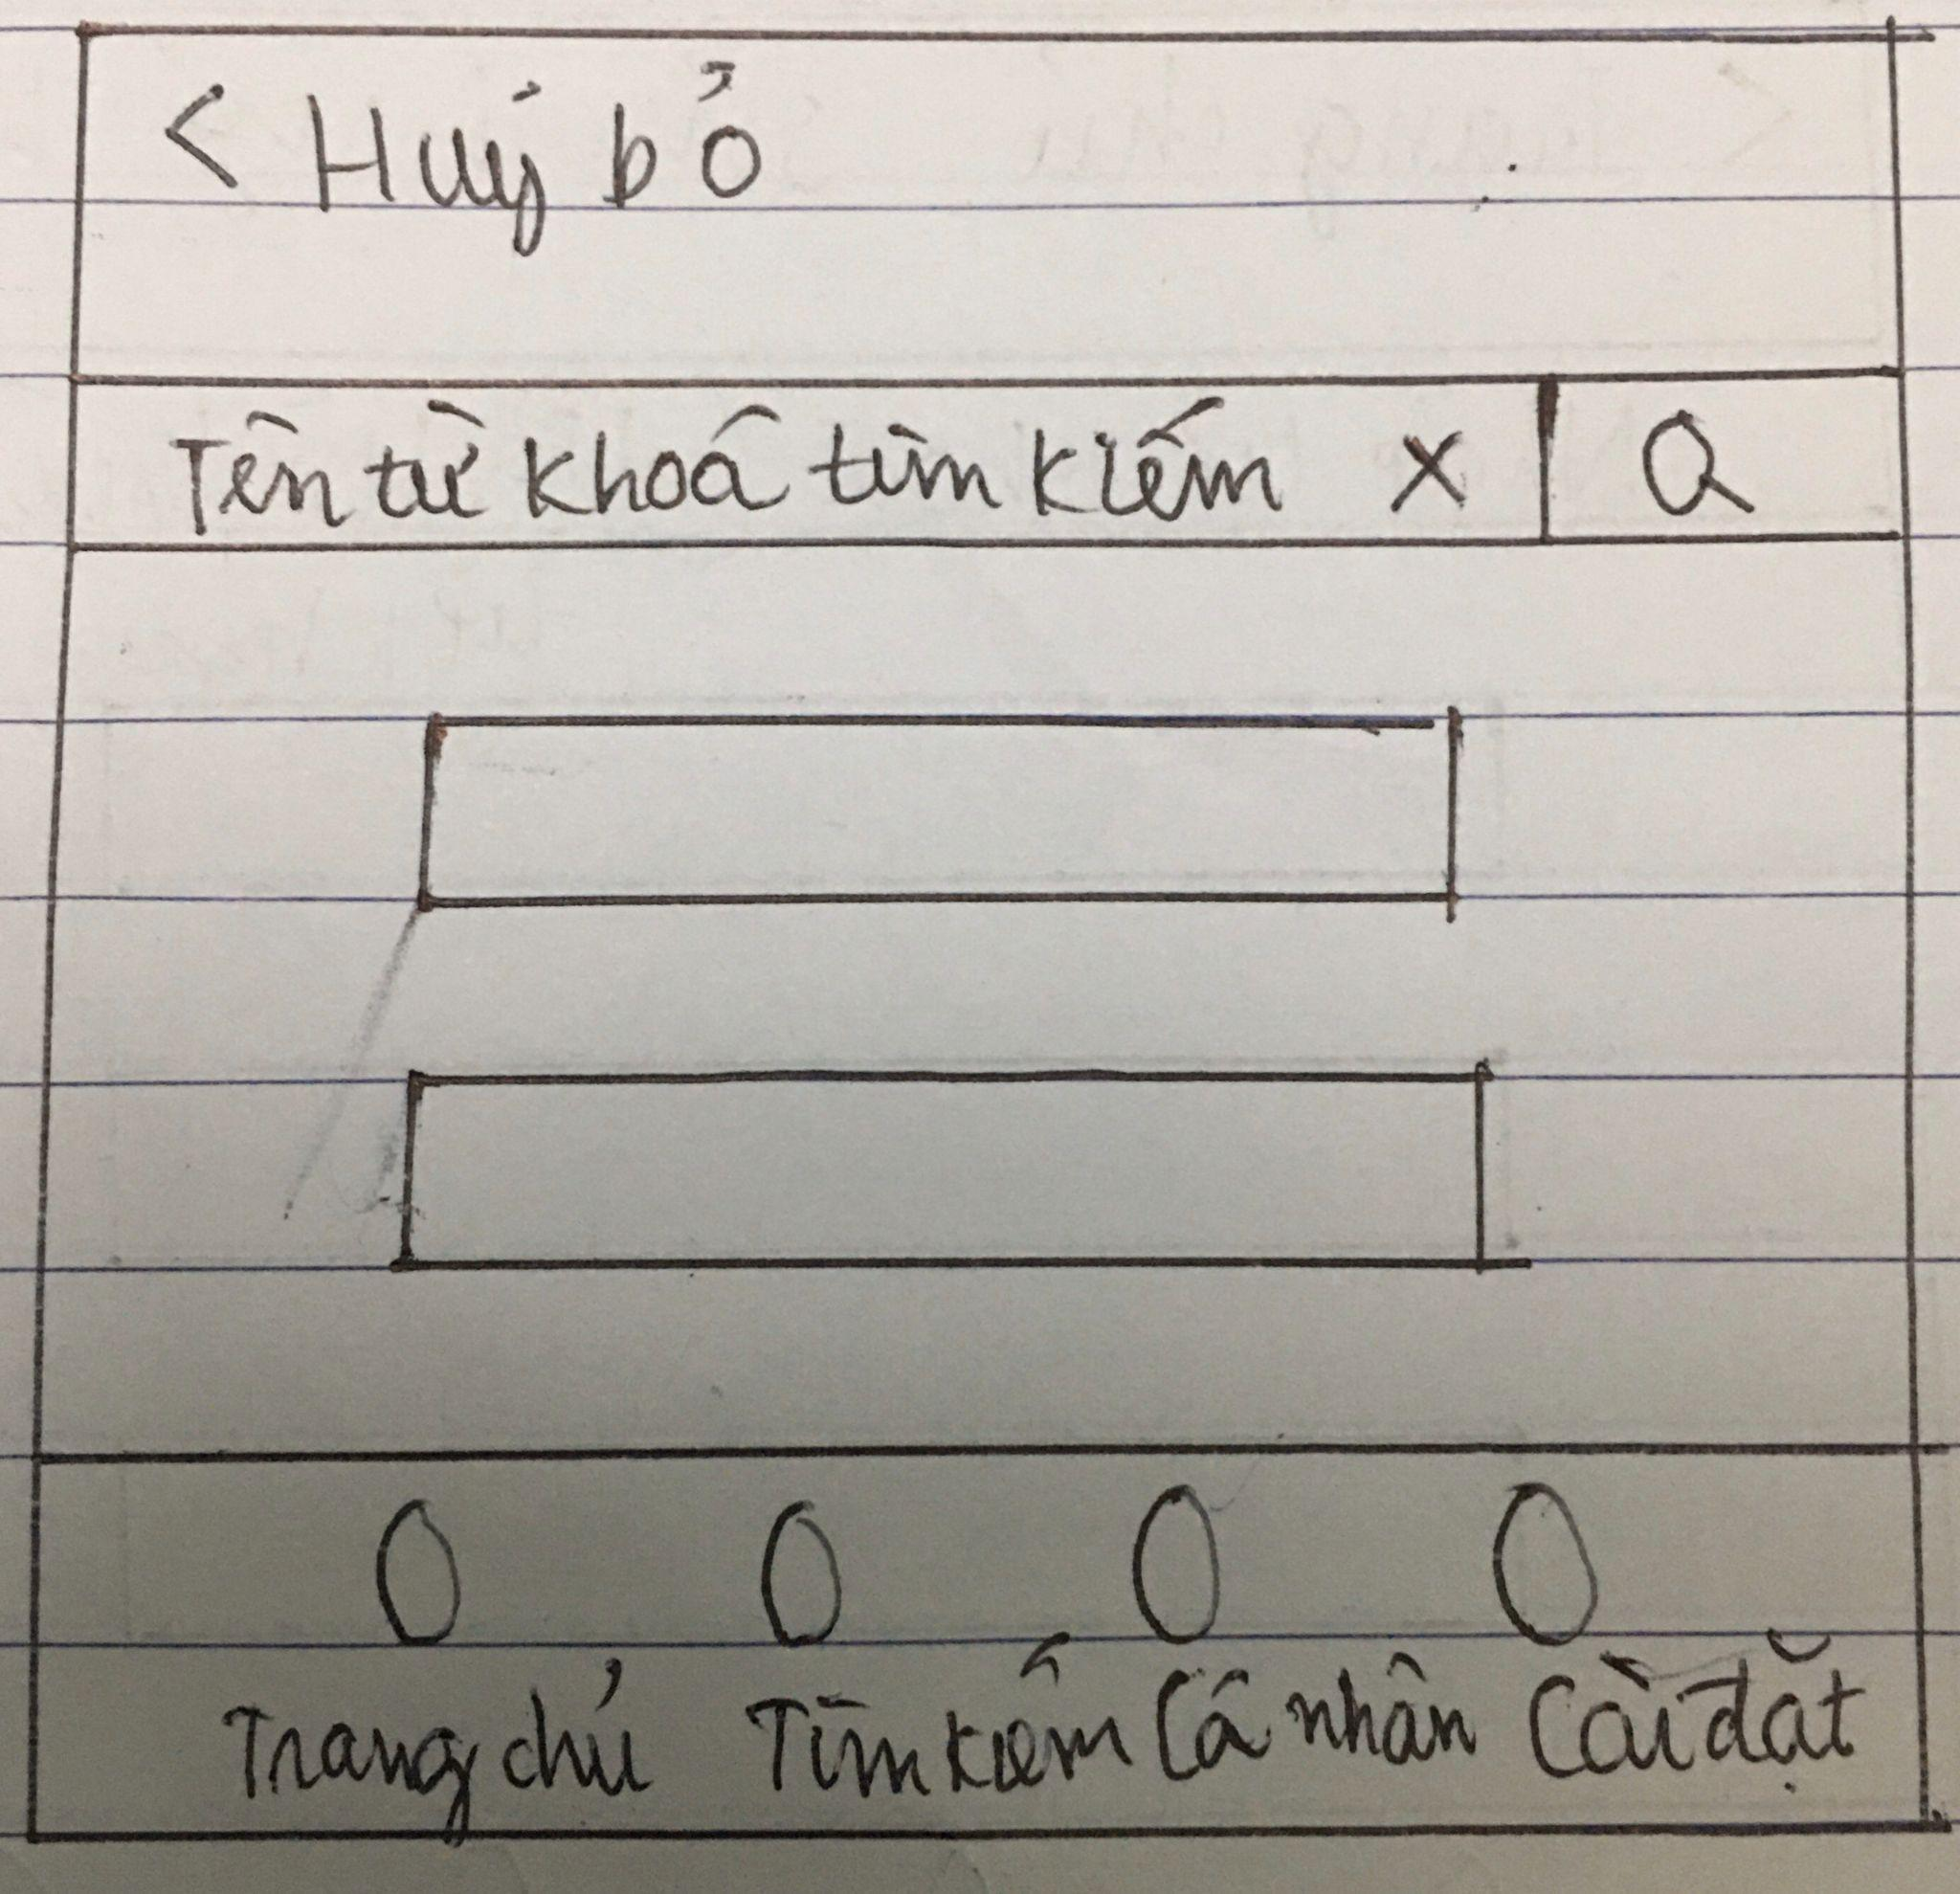 < Huỷ bỏ
Tên từ khoá tìm kiếm X Q
Trang chủ Tìm kiếm Cá nhân Cài đặt